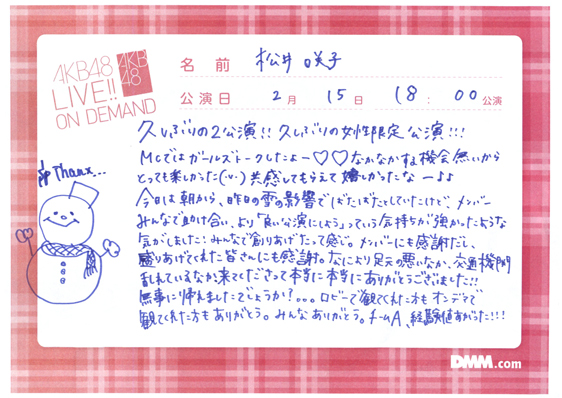 AKB48
LIVE!!
ON DEMAND
AKB
48
名前 松井咲子
公演日 2月 15日 18:00公演
久しぶりの2公演!! 久しぶりの女性限定公演!!!
MCではガールズトークしたよー♡♡なかなかする機会無いから
とっても楽しかった(^v^)共感してもらえて嬉しかったなーよよ
今日は朝から、昨日の雪の影響でばたばたとしていたけど、メンバー
みんなで助け合い、より「良い公演にしよう」っていう気持ちが強かったような
気がしました!みんなで創りあげたって感じ。メンバーにも感謝だし、
盛りあげてくれた皆さんにも感謝。なにより足元の悪いなか、交通機関
乱れているなか来てくださって本当に本当にありがとうございました!!
無事に帰れましたでしょうか?。。。ロビーで観てくれた方もオンデマで
観てくれた方もありがとう。みんなありがとう。チームA、経験値あがった!!!
Thanx...
DMM.com